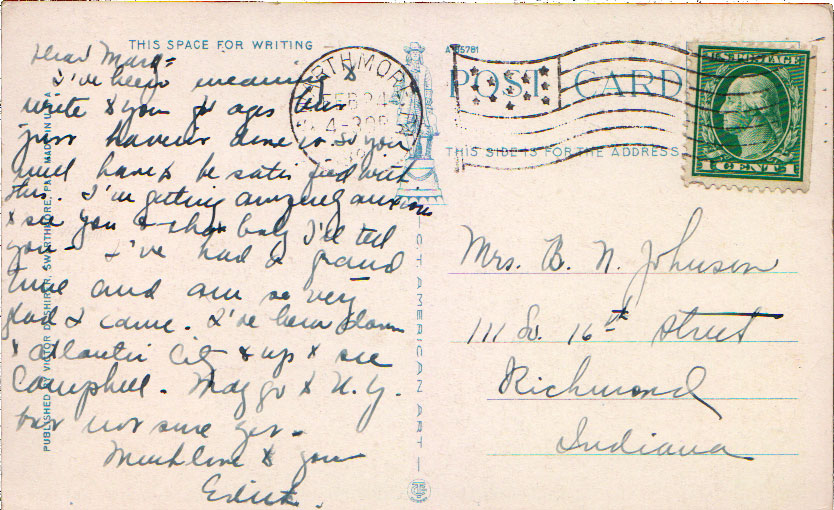 THIS SPACE FOR WRITING
A-115781
POST CARD
THIS SIDE IS FOR THE ADDRESS
U.S. POSTAGE
1 CENT 1
SWARTHMORE
FEB 24
4-30P
PA.
Dear Mary=
I've been meaning to
write to you for ages but
just haven't done so. So you
will have to be satisfied with
this. I'm getting anxious
to see you & that baby I'll tell
you - I've had a grand
time and am so very
glad I came. I've been down
to Atlantic City & up to see
Campbell. May go to N.Y.
but not sure yet.
Much love to you
Edith.
Mrs. B. N. Johnson
111 So. 16th Street
Richmond
Indiana
PUBLISHED BY VICTOR D. SHIRER, SWARTHMORE, PA. MADE IN U.S.A.
C.T. AMERICAN ART